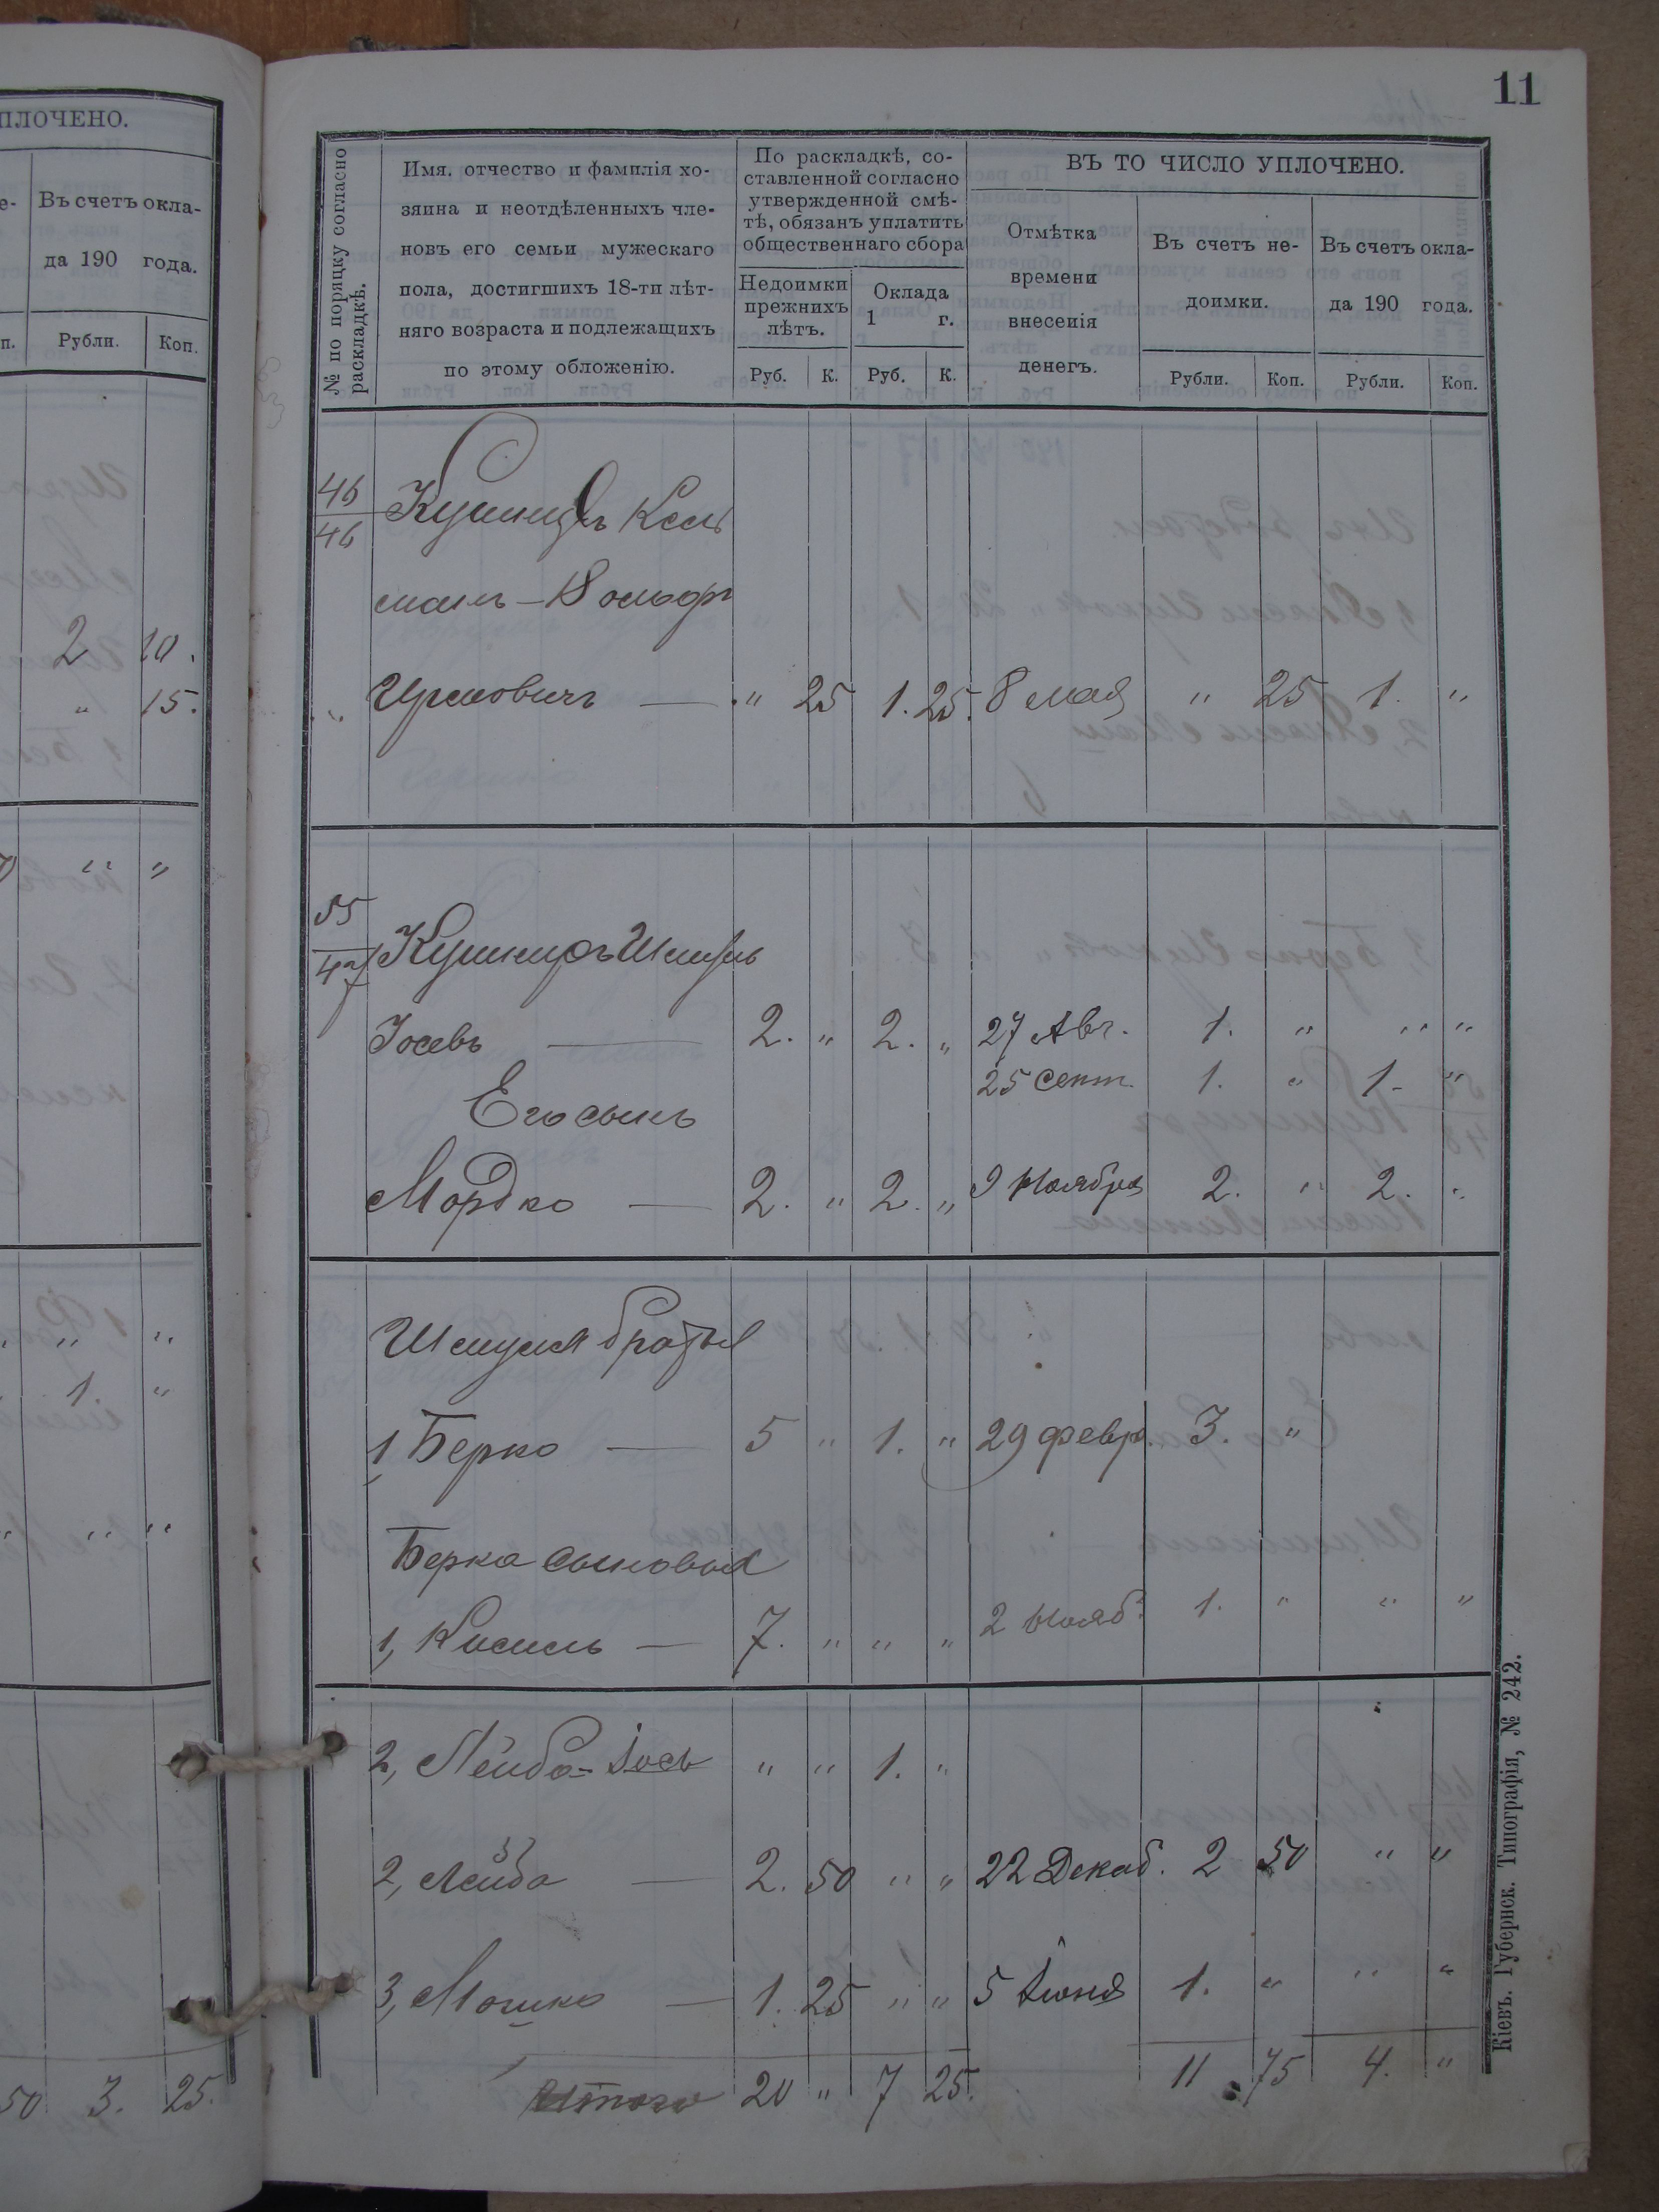 ПЛОЧЕНО.
Въ счетъ окла-
да 190 года.
Рубли. Коп.
2 10.
" 15.
" "
" "
1. "
" "
50 3. 25.
11
№ по порядку согласно
раскладкѣ.
Имя, отчество и фамилія хо-
зяина и неотдѣленныхъ чле-
новъ его семьи мужескаго
пола, достигшихъ 18-ти лѣт-
няго возраста и подлежащихъ
по этому обложенію.
По раскладкѣ, со-
ставленной согласно
утвержденной смѣ-
тѣ, обязанъ уплатить
общественнаго сбора
Недоимки
прежнихъ
лѣтъ.
Оклада
1 г.
Руб. К. Руб. К.
ВЪ ТО ЧИСЛО УПЛОЧЕНО.
Отмѣтка
времени
внесенія
денегъ.
Въ счетъ не-
доимки.
Въ счетъ окла-
да 190 года.
Рубли. Коп. Рубли. Коп.
46
46
Кушниръ Кель
манъ-Вольфъ
" Ицковичъ — " 25 1. 25. 8 мая " 25 1. "
55
47
Кушниръ Шмуль
Іосевъ — 2. " 2. " 27 Авг. 1. " " "
25 Сент. 1. " 1- "
Его сынъ
Мордко — 2. " 2. " 9 Ноября 2. " 2. "
Шмуля братья
1, Берко — 5 " 1. " 29 февр. 3. "
Берка сыновья
1, Кисиль — 7. " " " 2 Нояб. 1. " " "
2, Лейба-Іось " " 1. "
2, Лейба — 2. 50 " " 22 Декаб. 2 50 " "
3, Мошко — 1. 25 " " 5 Іюня 1. " " "
Итого 20 " 7 25. 11 75 4. "
Кіевъ. Губернск. Типографія, № 242.